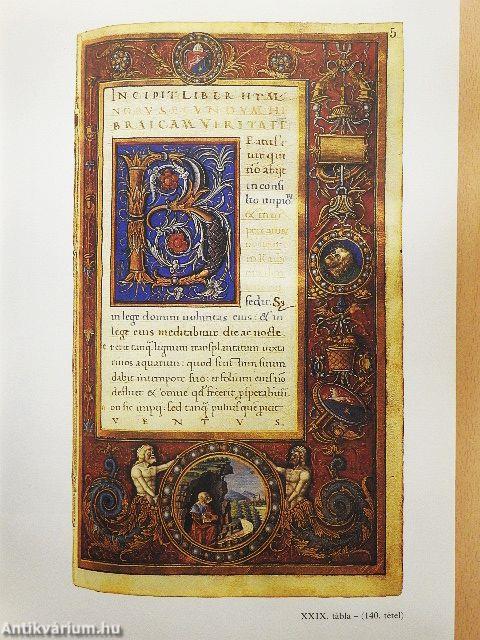 5
INCIPIT LIBER HYM
NORVM SECVNDVM HE
BRAICAM VERITATE
in consi
sedit. Sʒ
in lege domini voluntas eius: et in
lege eius meditabitur die ac nocte.
erit tanq̃ lignum transplantatum iuxta
rivos aquarum: quod fructum suum
dabit in tempore suo: et folium eius nõ
defluet et omne qď fecerit, ꝓsperabitur
non sic impij: sed tanq̃ pulvis quẽ proicit
VENTUS.
XXIX. tábla – (140. tétel)
Antikvárium.hu